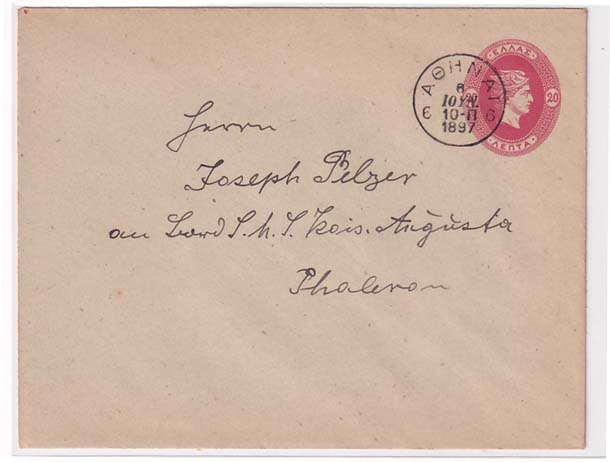 ΕΛΛΑΣ
20 20
ΛΕΠΤΑ
ΑΘΗΝΑΙ
6
ΙΟΥΝ.
10-Π
1897
6 6
Herrn
Joseph Pelzer
an Bord S. M. S. Kais. Augusta
Phaleron